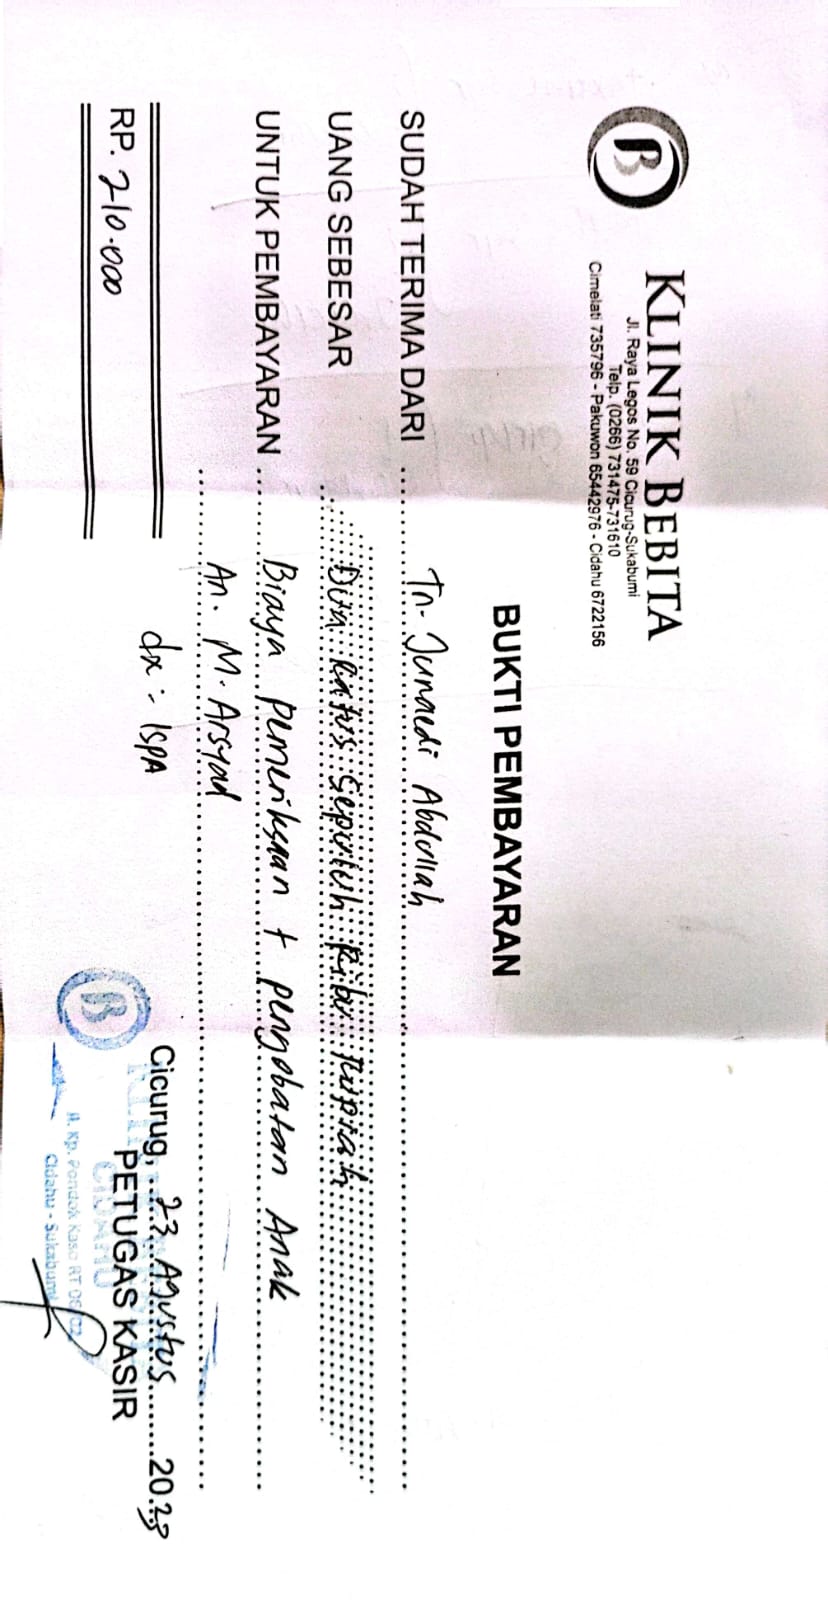 KLINIK BEBITA
Jl. Raya Legos No. 59 Cicurug-Sukabumi
Telp. (0266) 731475-731610
Cimelati 735796 - Pakuwon 65442976 - Cidahu 6722156
BUKTI PEMBAYARAN
SUDAH TERIMA DARI Tn. Junaedi Abdullah
UANG SEBESAR Dua Ratus Sepuluh Ribu Rupiah
UNTUK PEMBAYARAN Biaya Pemeriksaan + pengobatan Anak
An. M. Arsyad
RP. 210.000
dx : ISPA
Cicurug, 23 Agustus 20
PETUGAS KASIR
B
CIDAHU
Jl. Kp. Pondok Kaso RT 06/02
Cidahu - Sukabumi